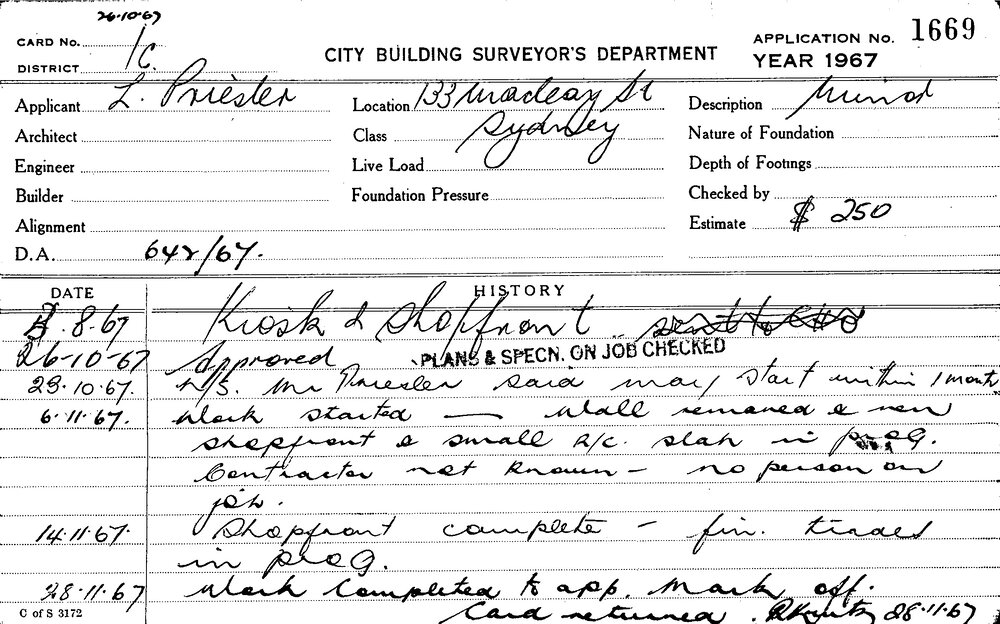 26·10·67
CARD No.
DISTRICT 1c.
CITY BUILDING SURVEYOR'S DEPARTMENT
APPLICATION No. 1669
YEAR 1967
Applicant L. Priester
Location 133 Macleay St
Sydney
Description Minor
Architect
Class
Nature of Foundation
Engineer
Live Load
Depth of Footings
Builder
Foundation Pressure
Checked by
Alignment
Estimate $ 250
D.A. 642/67.
DATE
HISTORY
8·67 Kiosk & Shopfront sent to
26-10-67 Approved PLANS & SPECN. ON JOB CHECKED
23·10·67. N/S. Mr Priester said may start within 1 month
6·11·67. Work started — Wall removed & new
shopfront & small R/c. slab in prog.
Contractor not known – no person on
job.
14·11·67. Shopfront complete – fin. trades
in prog.
28·11·67 Work Completed to app. Mark off.
Card returned. 28·11·67
C of S 3172